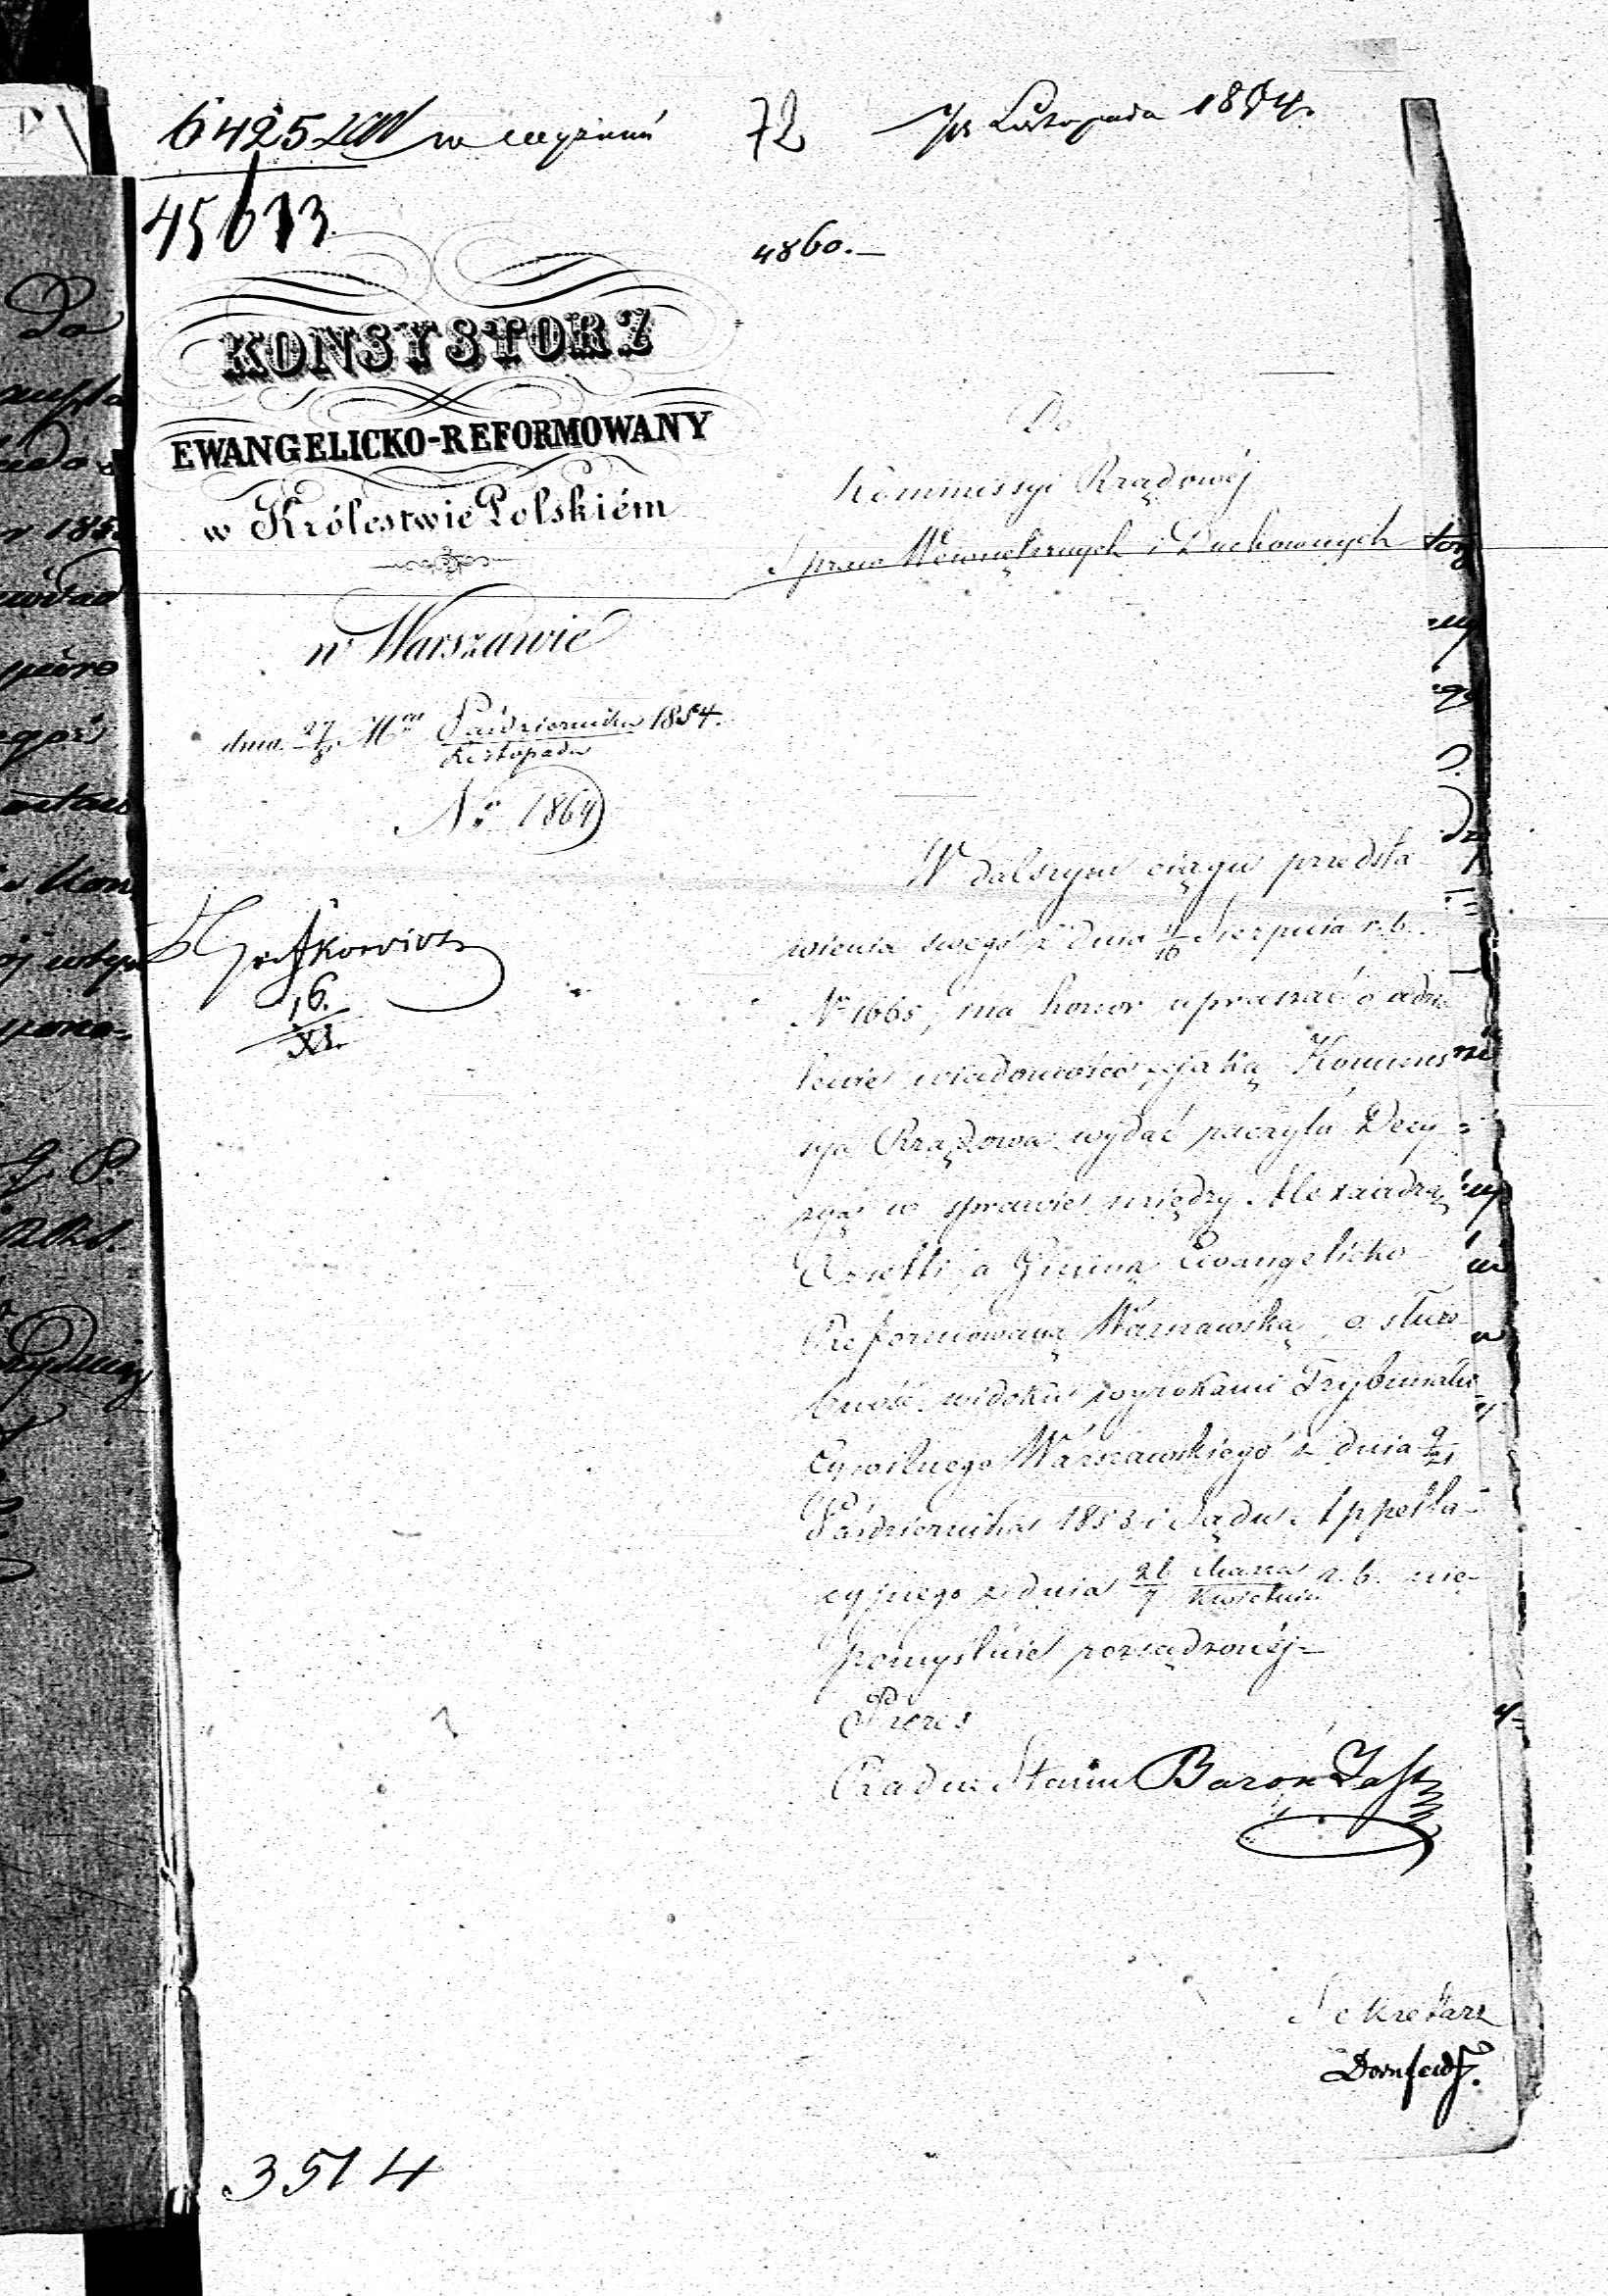 6425 w wyznań 72 Listopada 1854.
45673
4860.—
KONSYSTORZ
EWANGELICKO-REFORMOWANY
w Królestwie Polskiém
w Warszawie
dnia 27/8 Mca Października/Listopada 1854.
No 1864
16./XI.
Do
Kommissyi Rządowéj
Spraw Wewnętrznych i Duchownych
W dalszym ciągu przedsta-
wienia swego z dnia 4/16 Sierpnia r.b.
No 1665, ma honor upraszać o udzie-
lenie wiadomości, jaką Kommis-
sya Rządowa wydać raczyła Decy-
zyą w sprawie między Alexandrą
a Gminą Ewangelicko
Reformowaną Warszawską, o służe-
bność widoku wyrokami Trybunału
Cywilnego Warszawskiego z dnia 9/21
Października 1853 i Sądu Appella-
cyjnego z dnia 26/7 Marca/Kwietnia r.b. nie-
pomyślnie rozsądzonéj.—
Prezes
Radca Stanu Baron
Sekretarz
3514